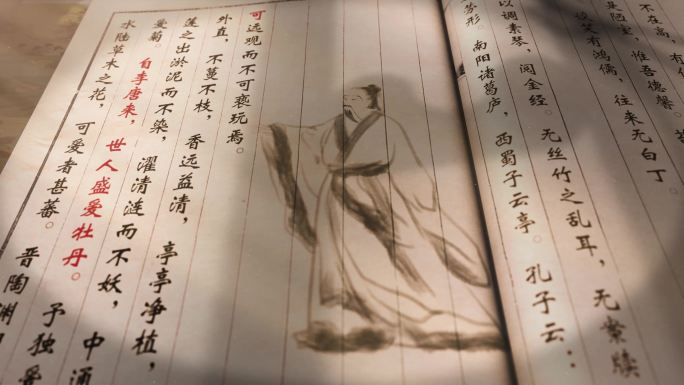 水陆草木之花，可爱者甚蕃。晋陶渊
爱菊。自李唐来，世人盛爱牡丹。予独爱
莲之出淤泥而不染，濯清涟而不妖，中通
外直，不蔓不枝，香远益清，亭亭净植，
可远观而不可亵玩焉。
不在高，有
是陋室，惟吾德馨。
谈笑有鸿儒，往来无白丁。
以调素琴，阅金经。无丝竹之乱耳，无案牍
劳形。南阳诸葛庐，西蜀子云亭。孔子云：